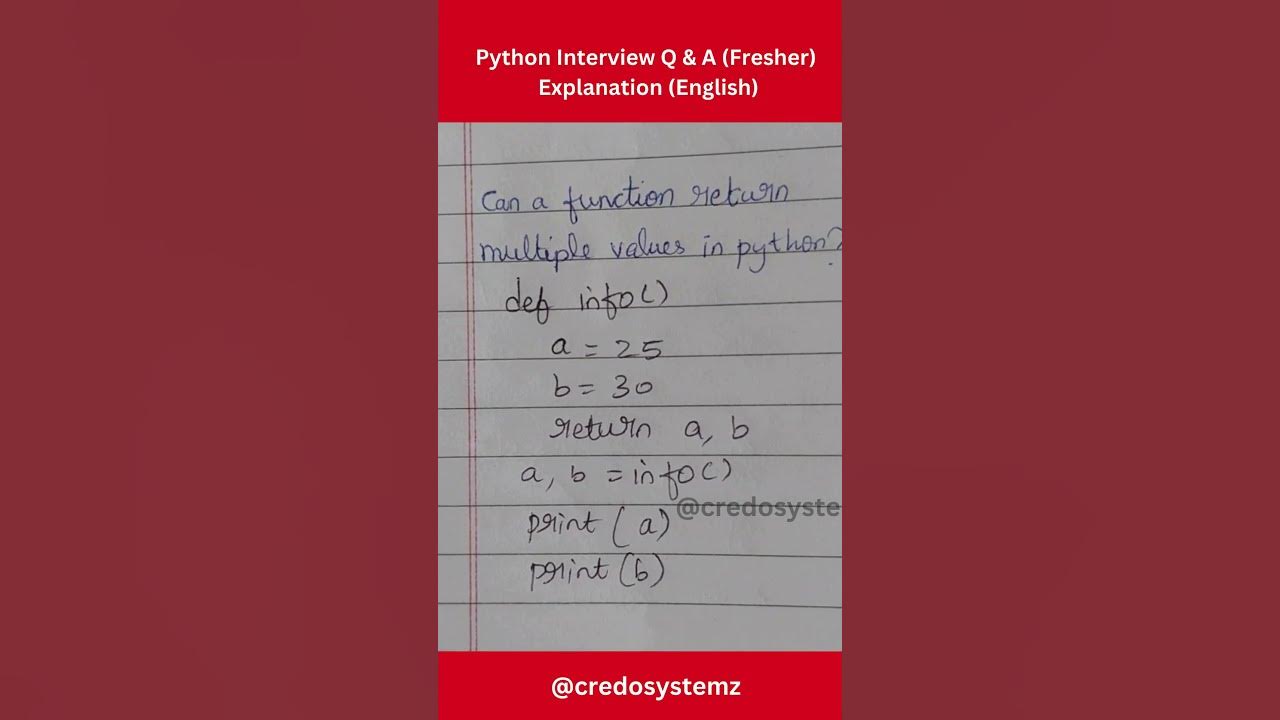 Python Interview Q & A (Fresher)
Explanation (English)
Can a function return
multiple values in python?
def info()
a = 25
b = 30
return a, b
a, b = info()
@credosyste
print ( a)
print (b)
@credosystemz